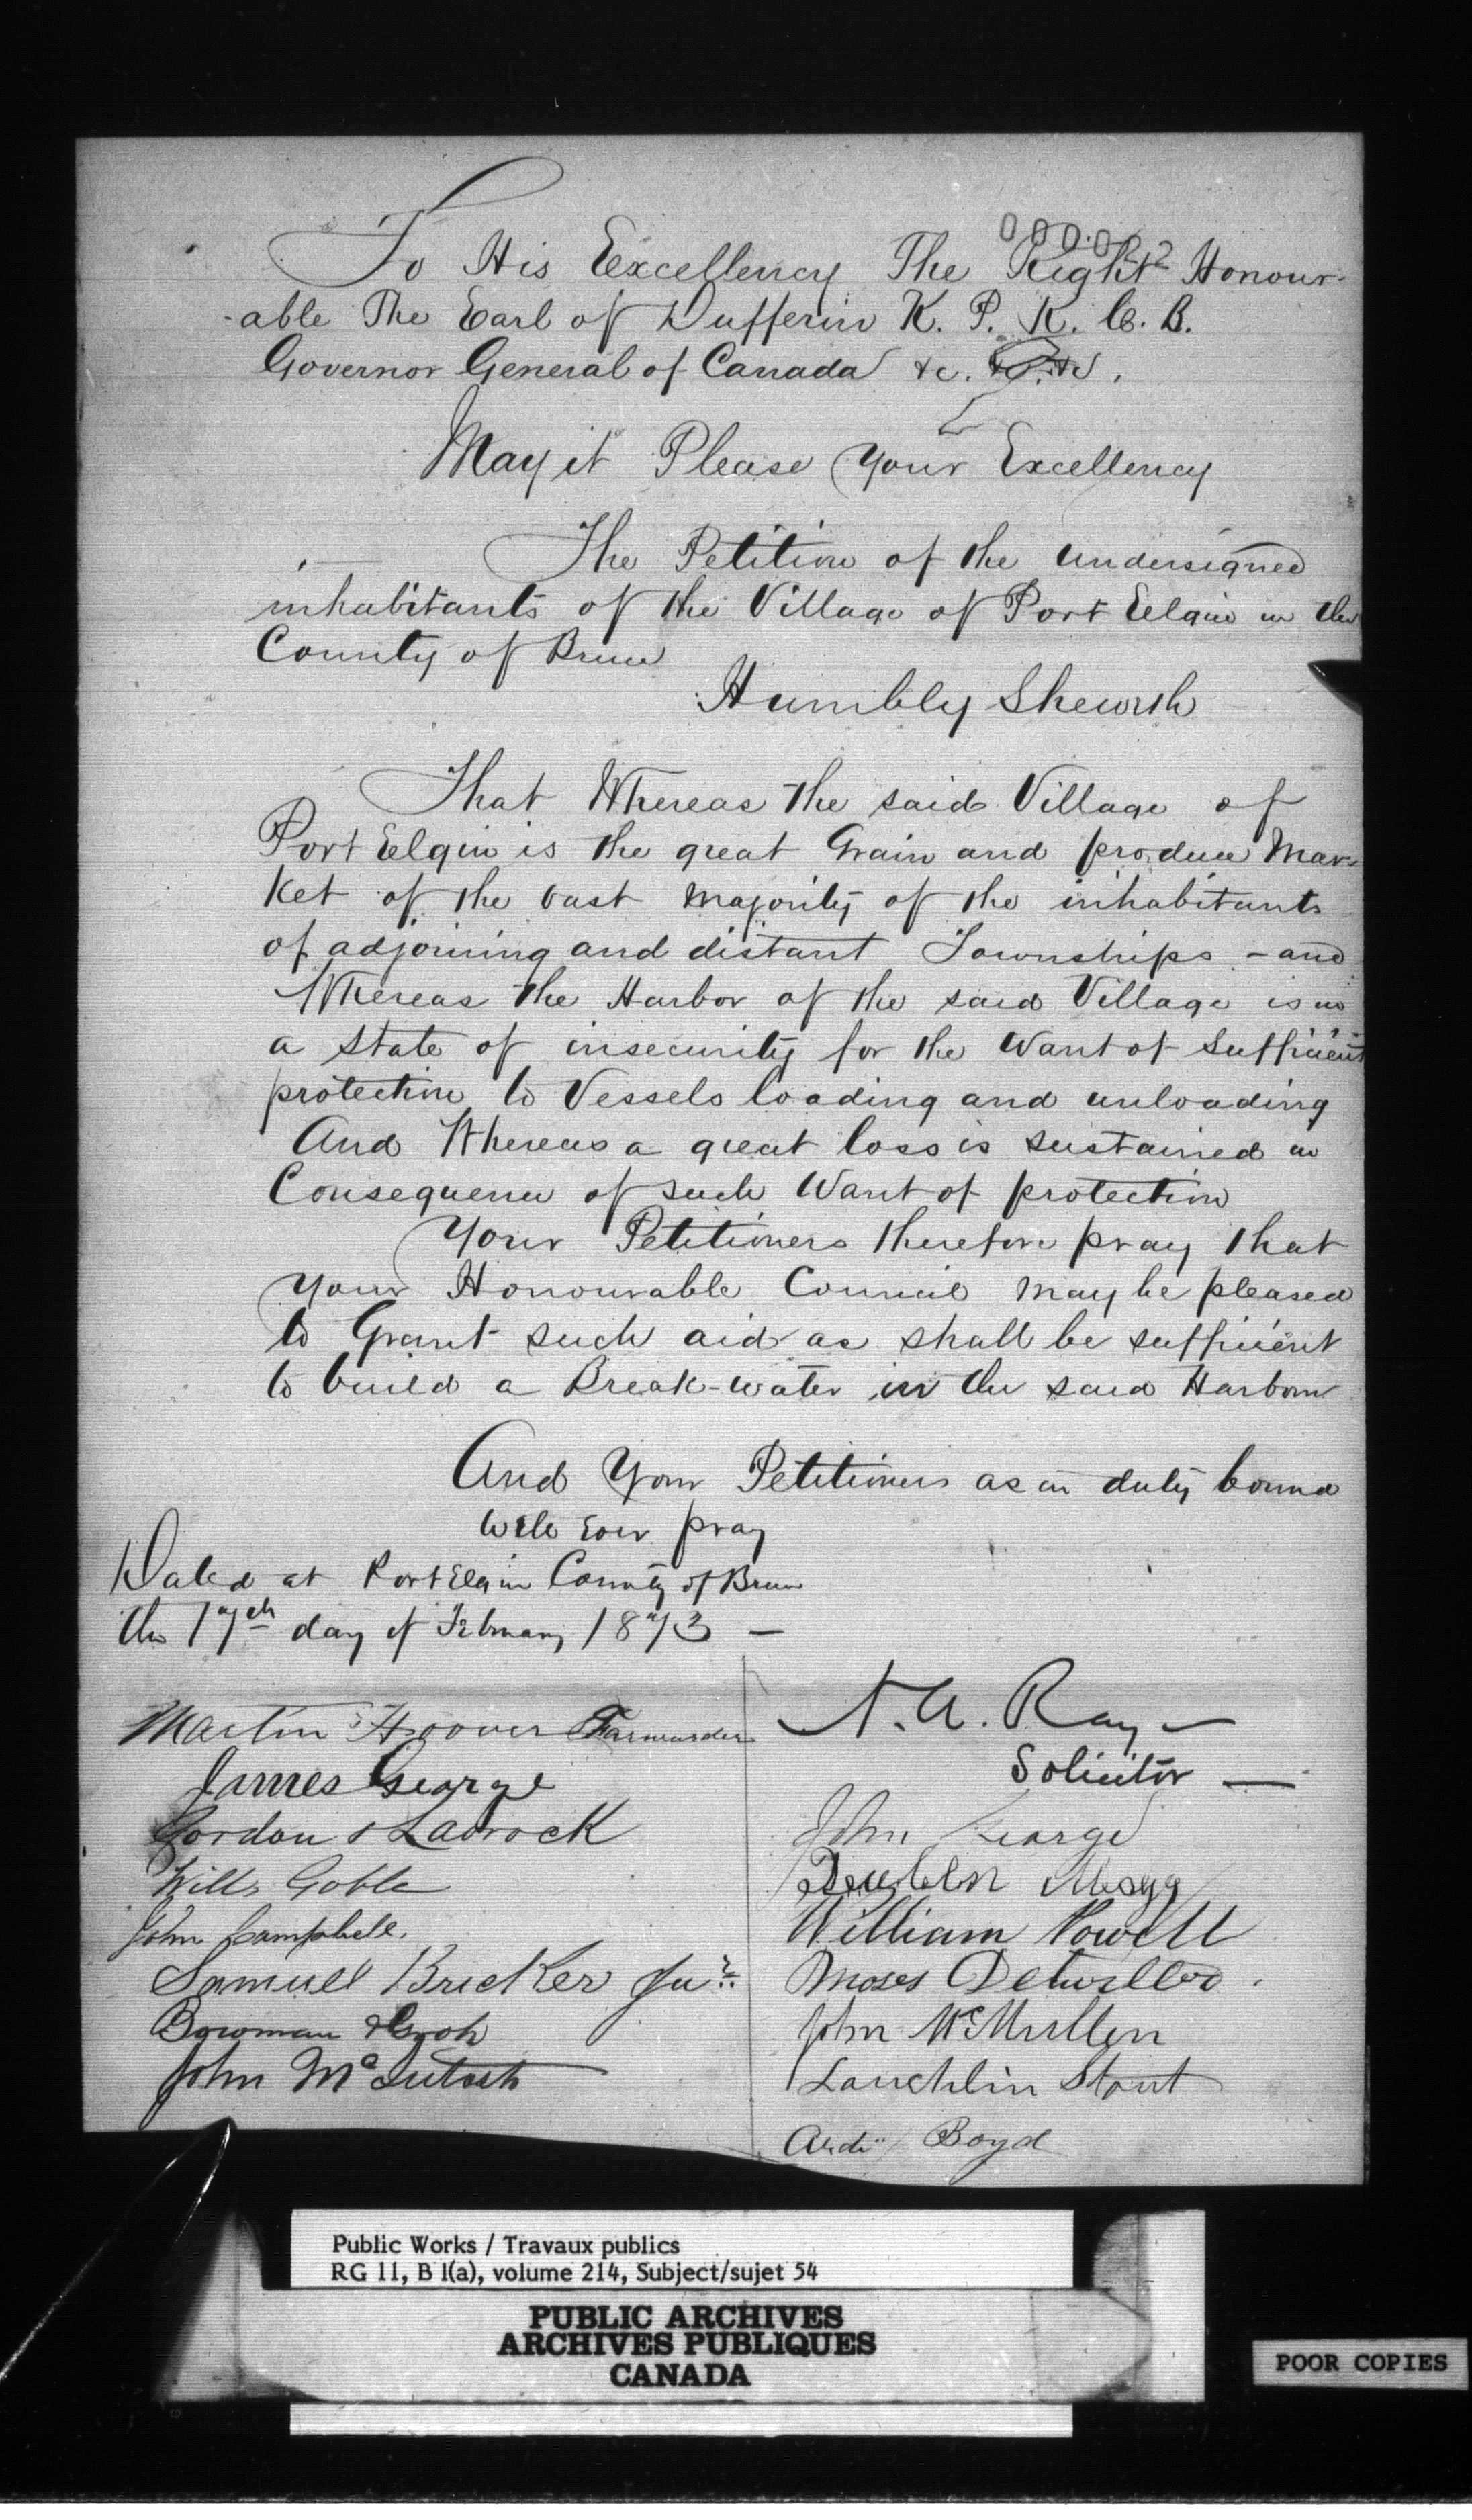 000022
To His Excellency The Right Honour-
-able The Earl of Dufferin K. P. K. C. B.
Governor General of Canada &c. &c. &c.
May it Please Your Excellency
The Petition of the undersigned
inhabitants of the Village of Port Elgin in the
County of Bruce
Humbly Sheweth
That Whereas the said Village of
Port Elgin is the great Grain and produce Mar-
ket of the vast majority of the inhabitants
of adjoining and distant Townships - and
Whereas the Harbor of the said Village is in
a state of insecurity for the Want of sufficient
protection to Vessels loading and unloading
And Whereas a great loss is sustained in
Consequence of such Want of protection
Your Petitioners therefore pray that
Your Honourable Council may be pleased
to Grant such aid as shall be sufficient
to build a Break-water in the said Harbour
And Your Petitioners as in duty bound
will ever pray
Dated at Port Elgin County of Bruce
the 17th day of February 1873 -
Martin Hoover
James George
Gordon &
Wills Goble
John Campbell.
Samuel Bricker Junr.
Bowman &
John McIntosh
A. Ray
Solicitor
John George
Reuben
William Powell
Moses Detwiller
John McMullen
Lauchlin Stout
Boyd
Public Works / Travaux publics
RG 11, B 1(a), volume 214, Subject/sujet 54
PUBLIC ARCHIVES
ARCHIVES PUBLIQUES
CANADA
POOR COPIES